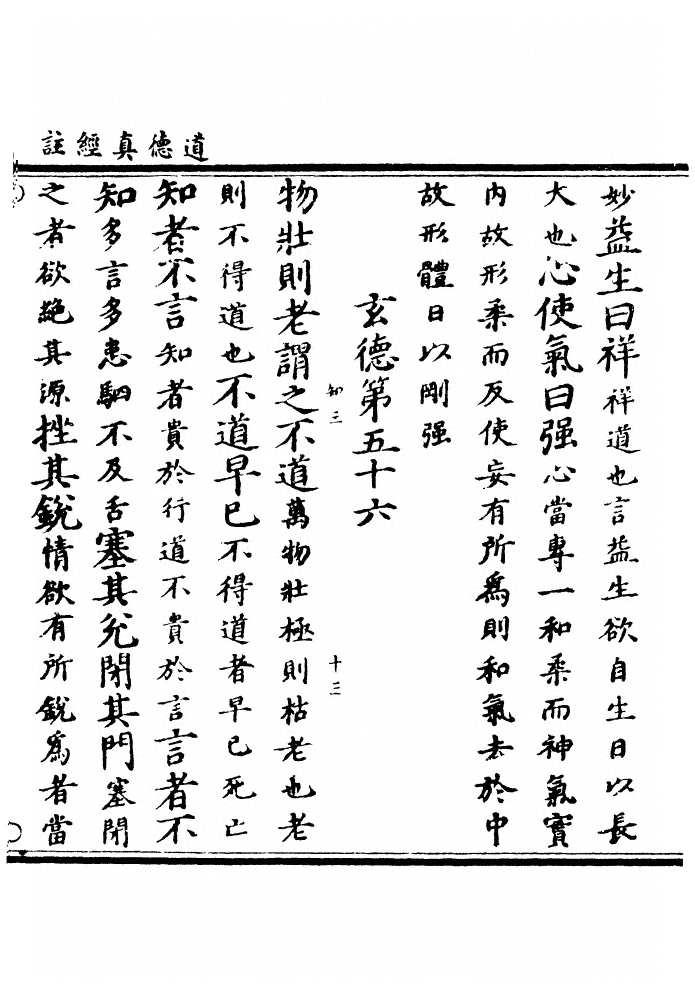 道德真經註
妙益生曰祥祥道也言益生欲自生日以長
大也心使氣曰强心當專一和柔而神氣實
內故形柔而反使妄有所爲則和氣去於中
故形體日以剛强
玄德第五十六
知三 十三
物壯則老謂之不道萬物壯極則枯老也老
則不得道也不道早已不得道者早已死亡
知者不言知者貴於行道不貴於言言者不
知多言多患駟不及舌塞其兊閉其門塞閉
之者欲絕其源挫其銳情欲有所銳爲者當